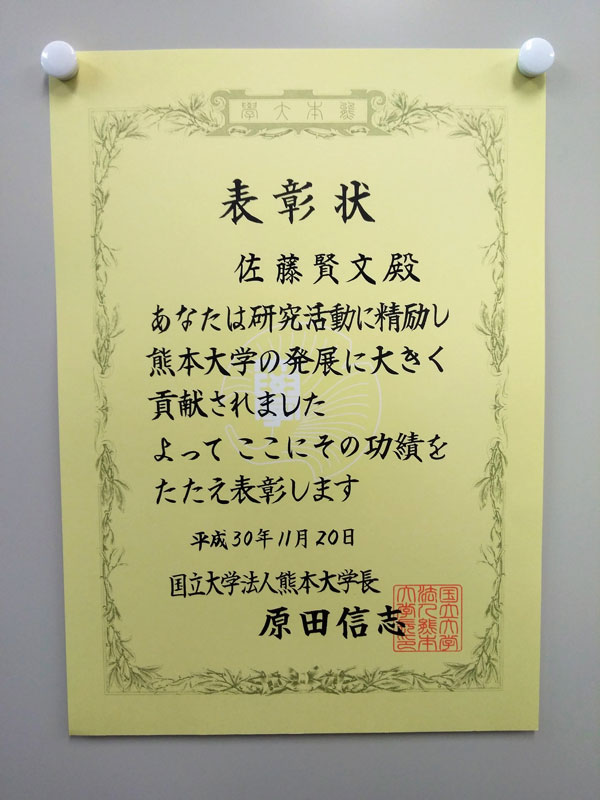 學大本熊
表彰状
佐藤賢文殿
あなたは研究活動に精励し
熊本大学の発展に大きく
貢献されました
よって ここにその功績を
たたえ表彰します
平成30年11月20日
国立大学法人熊本大学長
原田信志
国立大学
法人熊本
大学長印